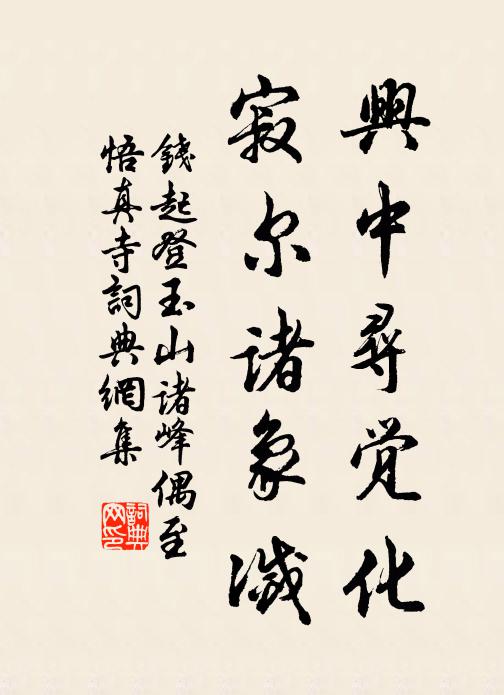 興中尋覚化
寂尔诸象滅
錢起登玉山诸峰偶至
悟真寺詞典網集
詞典
网印